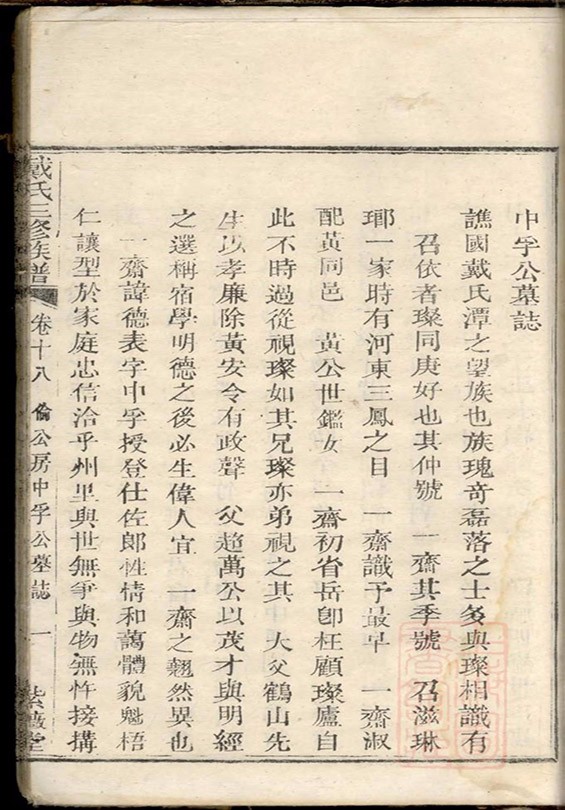 中孚公墓誌
譙國戴氏潭之望族也族瑰奇磊落之士多與璨相識有
召依者璨同庚好也其仲號 一齋其季號 召滋琳
瑯一家時有河東三鳳之目 一齋識予最早 一齋淑
配黃同邑 黃公世鑑女 一齋初省岳卽枉顧璨廬自
此不時過從視璨如其兄璨亦弟視之其 大父鶴山先
生以孝廉除黃安令有政聲 父趨萬公以茂才與明經
之選稱宿學明德之後必生偉人宜 一齋之翹然異也
一齋諱德表字中孚授登仕佐郎性情和藹體貌魁梧
仁讓型於家庭忠信洽乎州里與世無爭與物無忤接搆
戴氏三修族譜 卷十八 倫公房中孚公墓誌 一 紫薇堂